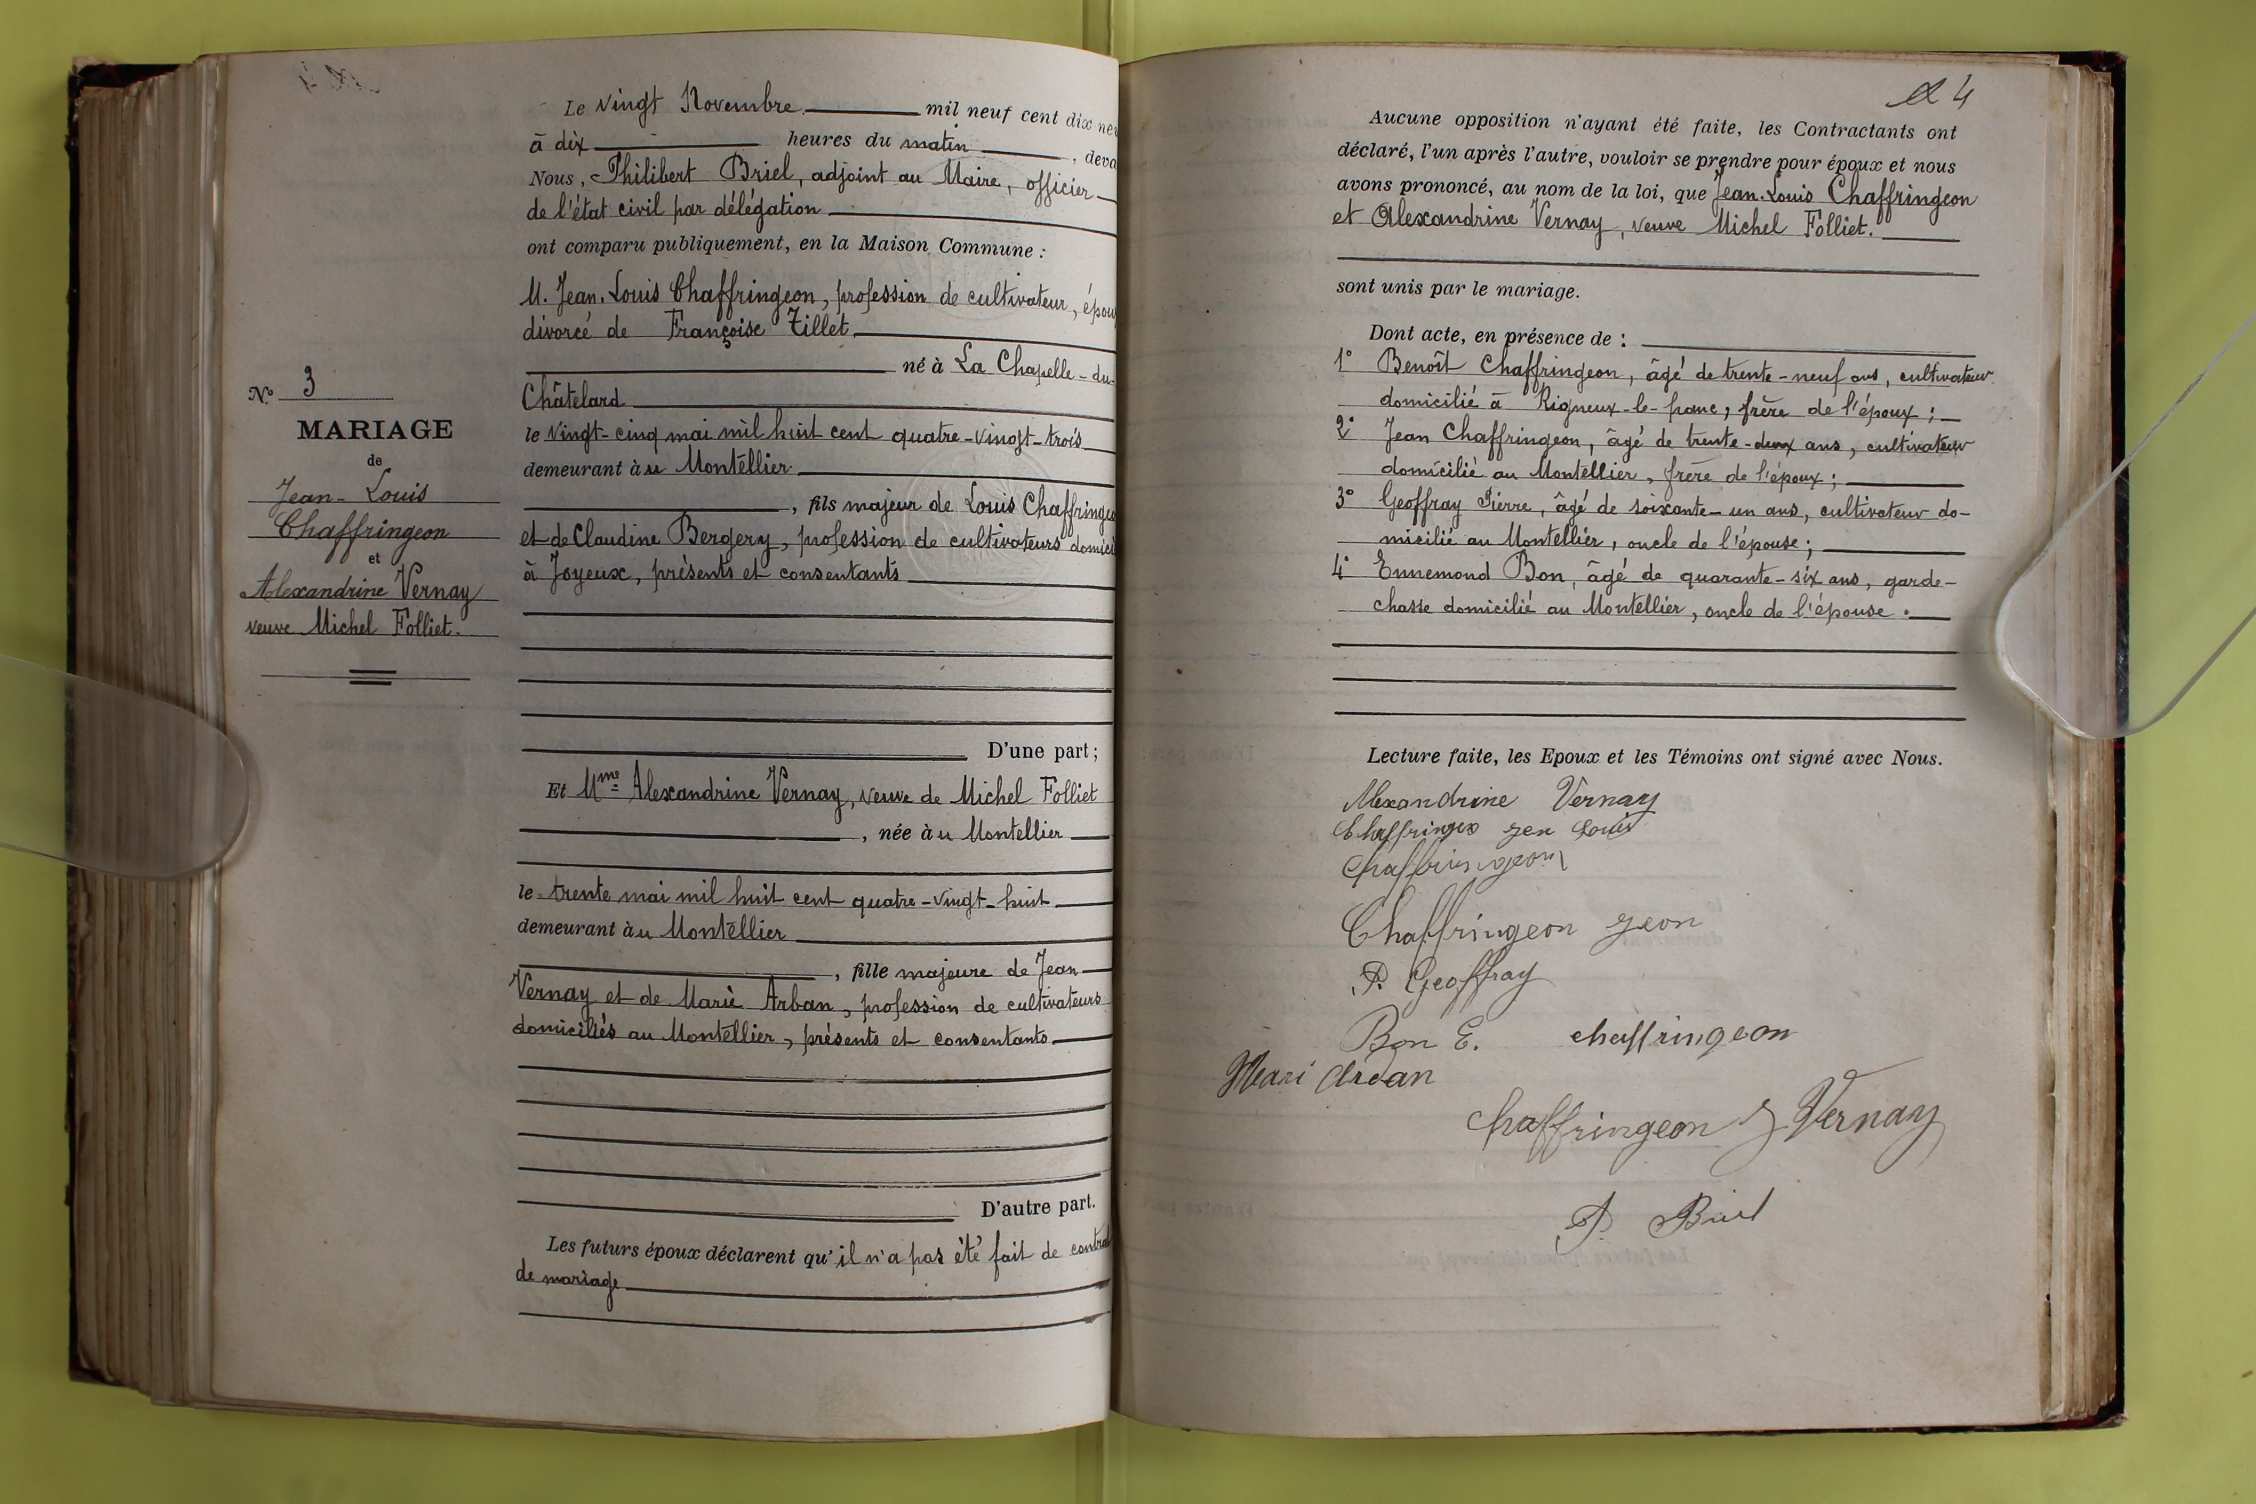 Le vingt Novembre mil neuf cent dix neu
à dix heures du matin, deva
Nous, Philibert Briel, adjoint au Maire, officier
de l'état civil par délégation
ont comparu publiquement, en la Maison Commune :
M. Jean-Louis Chaffringeon, profession de cultivateur, épou
divorcé de Françoise Tillet
né à La Chapelle-du-
Châtelard
le vingt-cinq mai mil huit cent quatre-vingt-trois
demeurant à u Montellier
, fils majeur de Louis Chaffringeo
et de Claudine Bergery, profession de cultivateurs domici
à Joyeux, présents et consentants
D'une part ;
Et Mme Alexandrine Vernay, veuve de Michel Folliet
, née à u Montellier
le trente mai mil huit cent quatre-vingt-huit
demeurant à u Montellier
, fille majeure de Jean
Vernay et de Marie Arban, profession de cultivateurs
domiciliés au Montellier, présents et consentants
D'autre part.
Les futurs époux déclarent qu'il n'a pas été fait de contrat
de mariage
N° 3
MARIAGE
de
Jean-Louis
Chaffringeon
et
Alexandrine Vernay
veuve Michel Folliet.
4
Aucune opposition n'ayant été faite, les Contractants ont
déclaré, l'un après l'autre, vouloir se prendre pour époux et nous
avons prononcé, au nom de la loi, que Jean-Louis Chaffringeon
et Alexandrine Vernay, veuve Michel Folliet.
sont unis par le mariage.
Dont acte, en présence de :
1° Benoît Chaffringeon, âgé de trente-neuf ans, cultivateur
domicilié à Rigneux-le-franc, frère de l'époux ;
2° Jean Chaffringeon, âgé de trente-deux ans, cultivateur
domicilié au Montellier, frère de l'époux ;
3° Geoffray Pierre, âgé de soixante-un ans, cultivateur do-
micilié au Montellier, oncle de l'épouse ;
4° Ennemond Bon, âgé de quarante-six ans, garde-
chasse domicilié au Montellier, oncle de l'épouse.
Lecture faite, les Epoux et les Témoins ont signé avec Nous.
Alexandrine Vernay
Louis
Chaffringeon
Chaffringeon jeon
P. Geoffray
Bon E. chaffringeon
Mari
Chaffringeon J Vernay
P. Briel